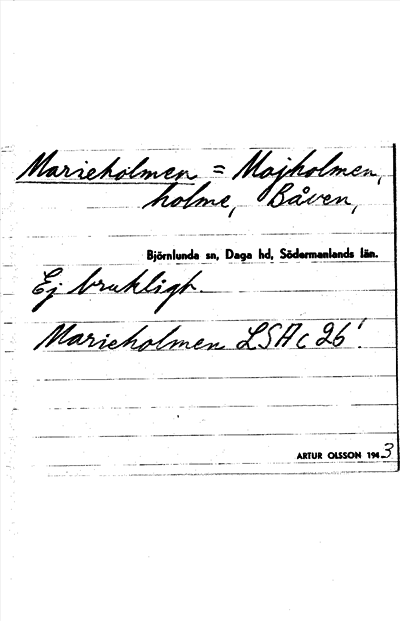 Marieholmen = Majholmen,
holme, Båven,
Björnlunda sn, Daga hd, Södermanlands län.
Ej brukligt
Marieholmen LSA c 26!
ARTUR OLSSON 1943